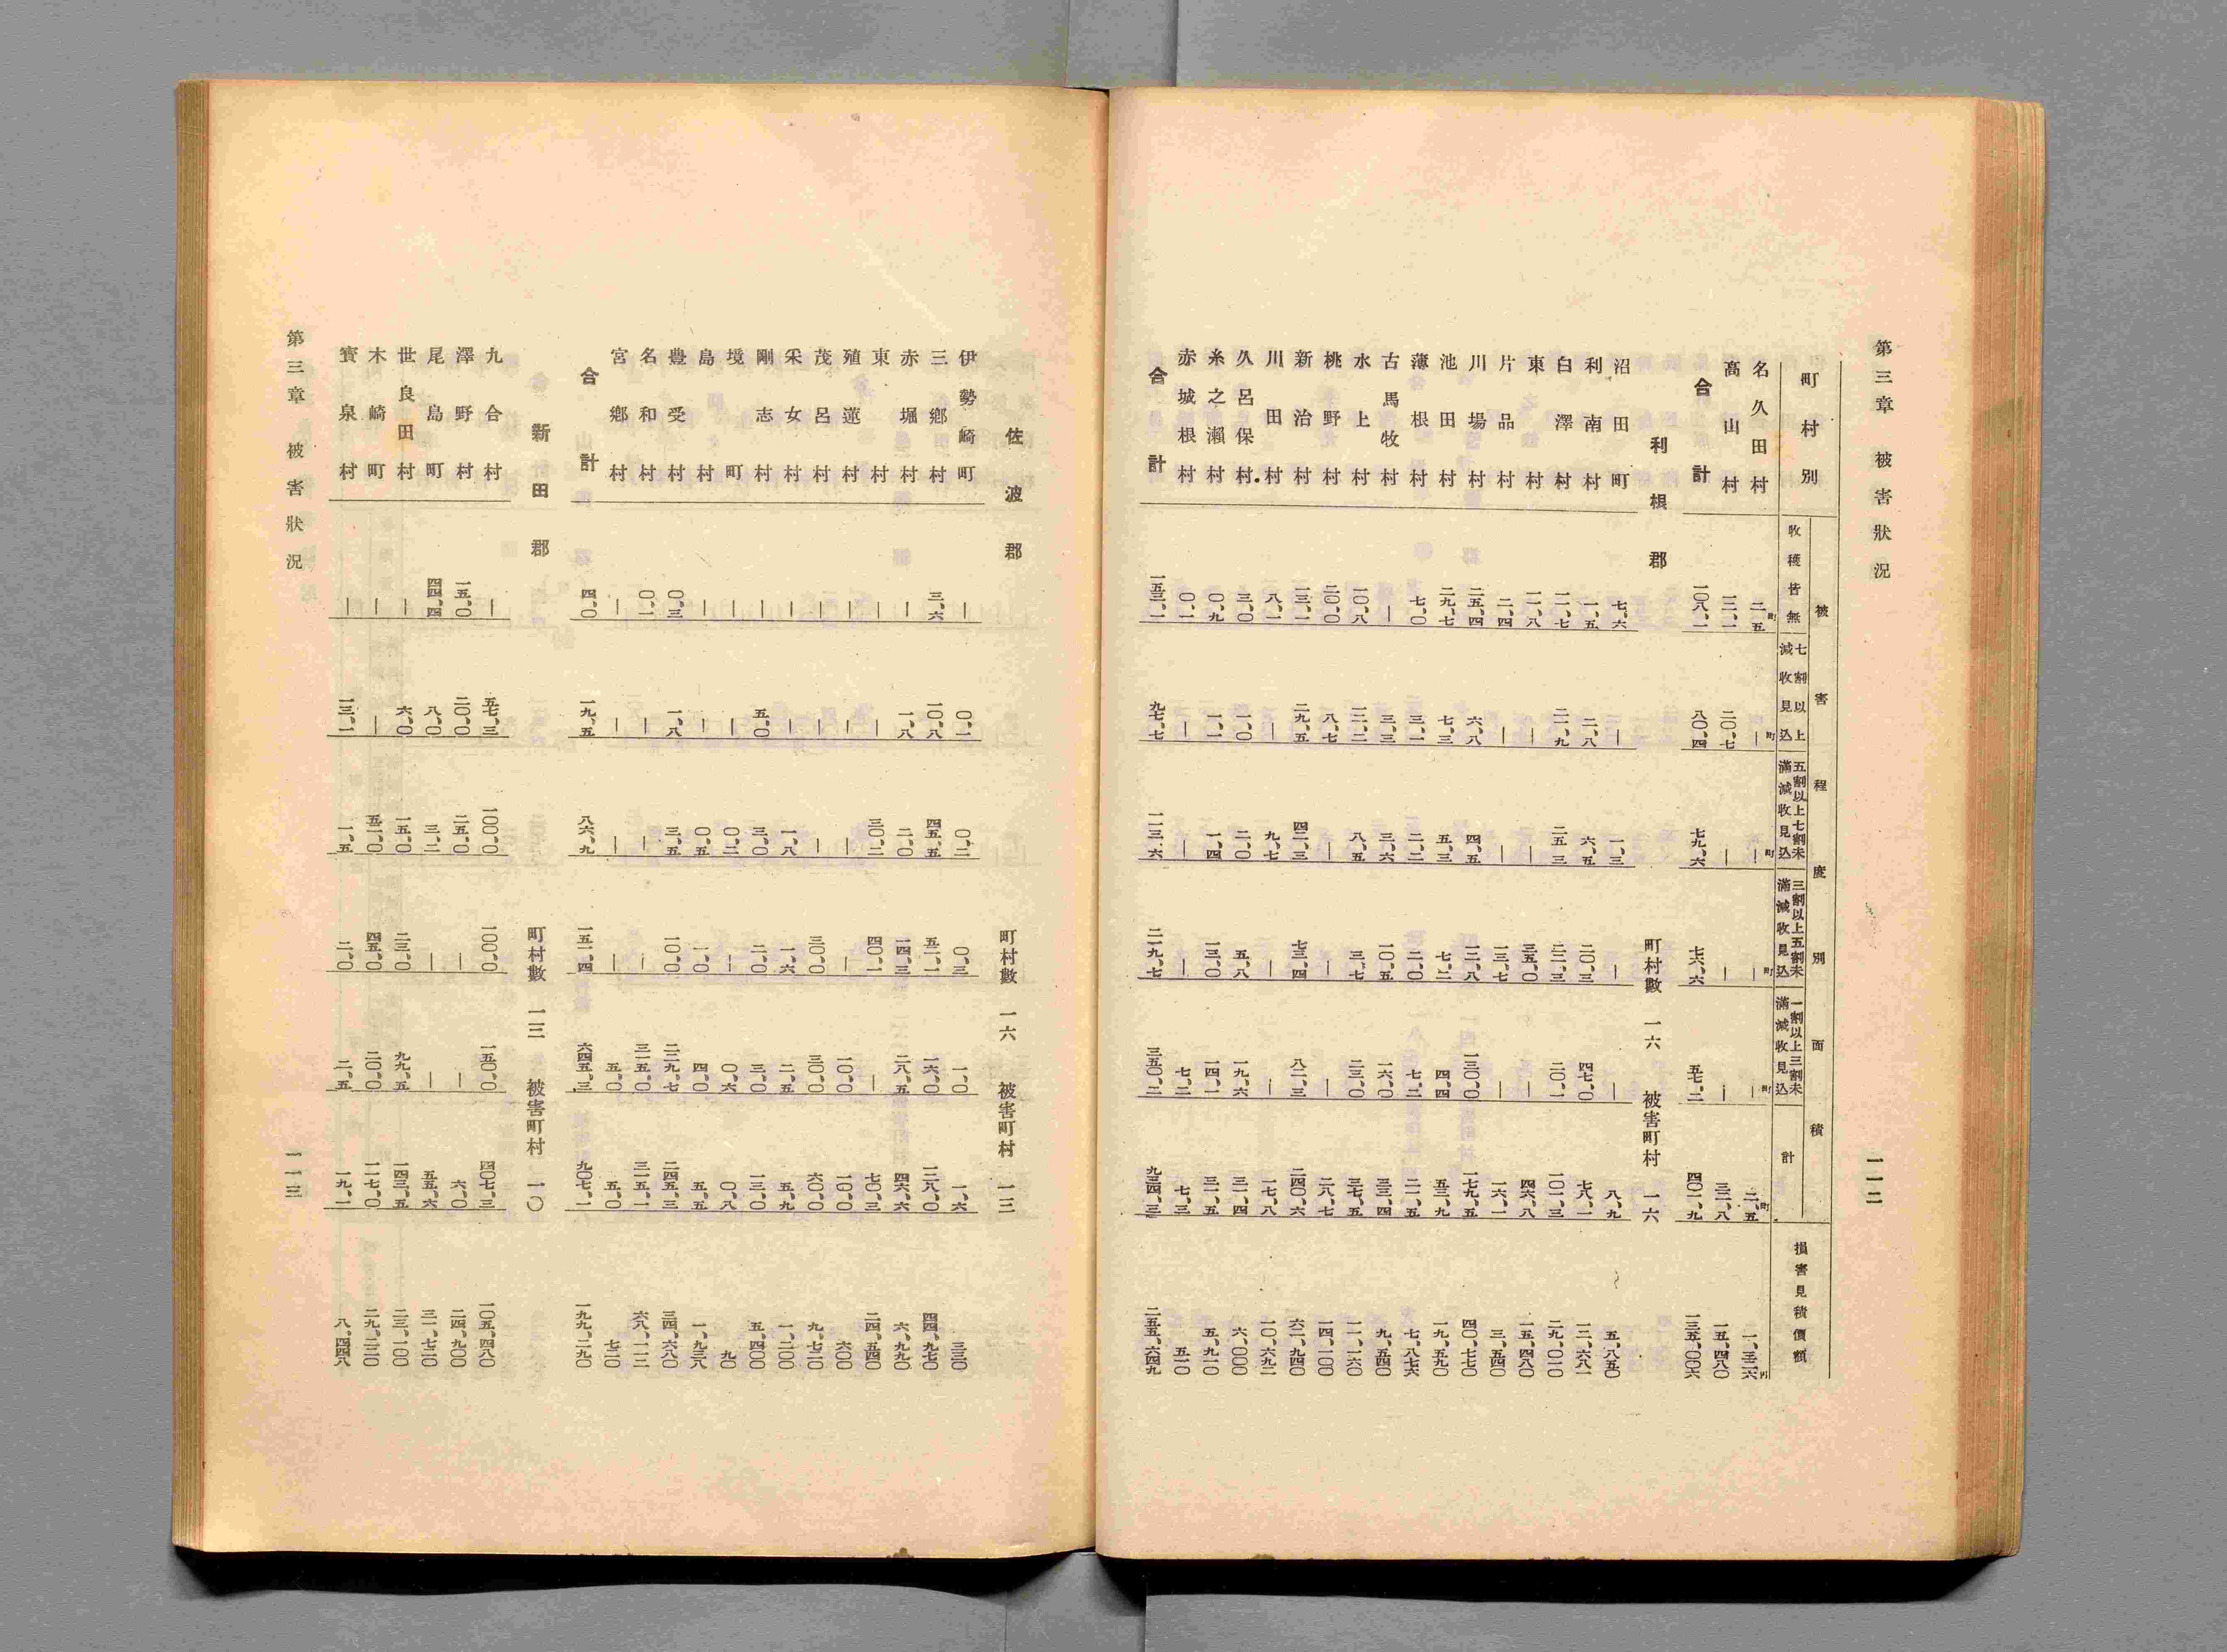 第三章 被害狀況 一一二
町村別
被害程度別面積
收穫皆無
七割以上減收見込
五割以上七割未滿減收見込
三割以上五割未滿減收見込
一割以上三割未滿減收見込
計
損害見積價額
名久田村 二、五町 —町 —町 —町 —町 二、五町 一、三二六円
高山村 一二、一 二〇、七 — — — 三二、八 一五、四八〇
合計 一〇八、一 八〇、四 七九、六 七六、六 五七、二 四〇一、九 一三五、〇〇六
利根郡 町村數 一六 被害町村 一六
沼田町 七、六 — 一、三 — — 八、九 五、八五〇
利南村 一、五 二、八 六、五 二〇、三 四七、〇 七八、一 一二、六八一
白澤村 一一、七 二一、九 二五、三 二二、三 二〇、一 一〇一、三 二九、〇二〇
東村 一一、八 — — 三五、〇 — 四六、八 一五、四八〇
片品村 二、四 — — 一三、七 — 一六、一 三、五四〇
川場村 二五、四 六、八 四、五 一二、八 一三〇、〇 一七九、五 四〇、七七〇
池田村 二九、七 七、三 五、三 七、二 四、四 五三、九 一九、五九〇
薄根村 七、〇 三、一 二、二 二、〇 七、二 二一、五 七、八七六
古馬牧村 — 三、三 三、六 一〇、五 一六、〇 三三、四 九、五四〇
水上村 一〇、八 一二、二 八、五 三、七 二三、〇 三七、五 一一、一六〇
桃野村 二〇、〇 八、七 — — — 二八、七 一四、一〇〇
新治村 一三、一 二九、五 四二、三 七三、四 八二、三 二四〇、六 六二、九四〇
川田村 八、一 — 九、七 — — 一七、八 一〇、六九二
久呂保村 三、〇 一、〇 二、〇 五、八 一九、六 三一、四 六、〇〇〇
糸之瀬村 〇、九 一、一 一、四 一三、〇 一四、一 三一、五 五、九一〇
赤城根村 〇、一 — — — 七、二 七、三 五一〇
合計 一五三、一 九七、七 一一三、六 二一九、七 三五〇、二 九三四、三 二五五、六四九
佐波郡 町村數 一六 被害町村 一三
伊勢崎町 — 〇、一 〇、二 〇、三 一、〇 一、六 三三〇
三鄕村 三、六 一〇、八 四五、五 五二、一 一六、〇 一二八、〇 四四、九七〇
赤堀村 — 一、八 二、〇 一四、三 二八、五 四六、六 六、九九〇
東村 — — 三〇、二 四〇、一 — 七〇、三 二四、五四〇
殖蓮村 — — — — 一〇、〇 一〇、〇 六〇〇
茂呂村 — — — 三〇、〇 三〇、〇 六〇、〇 九、七二〇
采女村 — — 一、八 一、六 二、五 五、九 一、二〇〇
剛志村 — 五、〇 三、〇 二、〇 三、〇 一三、〇 五、四〇〇
境町 — — 〇、二 — 〇、六 〇、八 九〇
島村 — — 〇、五 一、〇 四、〇 五、五 一、九三八
豊受村 〇、三 一、八 三、五 一〇、〇 二二九、七 二四五、三 三四、六八〇
名和村 〇、一 — — — 三一五、〇 三一五、一 六八、一一二
宮鄕村 — — — — 五、〇 五、〇 七二〇
合計 四、〇 一九、五 八六、九 一五一、四 六四五、三 九〇七、一 一九九、二九〇
新田郡 町村數 一三 被害町村 一〇
九合村 — 五七、三 一〇〇、〇 一〇〇、〇 一五〇、〇 四〇七、三 一〇五、四八〇
澤野村 一五、〇 二〇、〇 二五、〇 — — 六、〇 二四、九〇〇
尾島町 四四、四 八、〇 三、二 — — 五五、六 三一、七二〇
世良田村 — 六、〇 一五、〇 二三、〇 九九、五 一四三、五 二三、一〇〇
木崎町 — — 五二、〇 四五、〇 二〇、〇 一一七、〇 二九、二二〇
寶泉村 — 一三、一 一、五 二、〇 二、五 一九、一 八、四四八
第三章 被害狀況 一一三